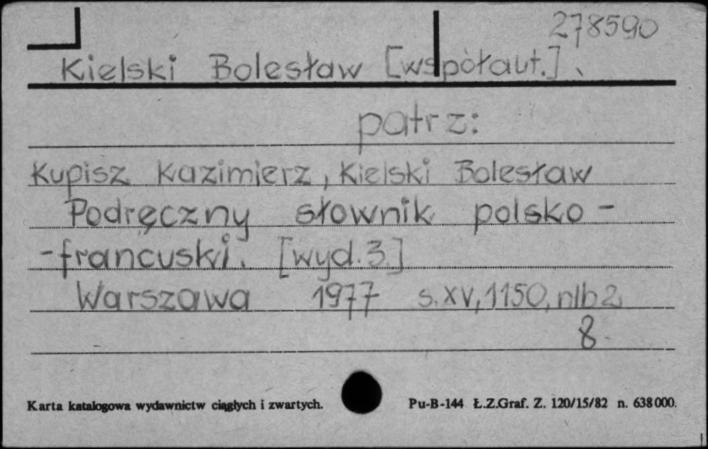 278590
Kielski Bolesław [współaut.].
patrz:
Kupisz Kazimierz, Kielski Bolesław
Podręczny słownik polsko-
-francuski. [wyd. 3.]
Warszawa 1977 s. XV, 1150, nlb 2
8.
Karta katalogowa wydawnictw ciągłych i zwartych. Pu-B-144 Ł.Z.Graf. Z. 120/15/82 n. 638000.